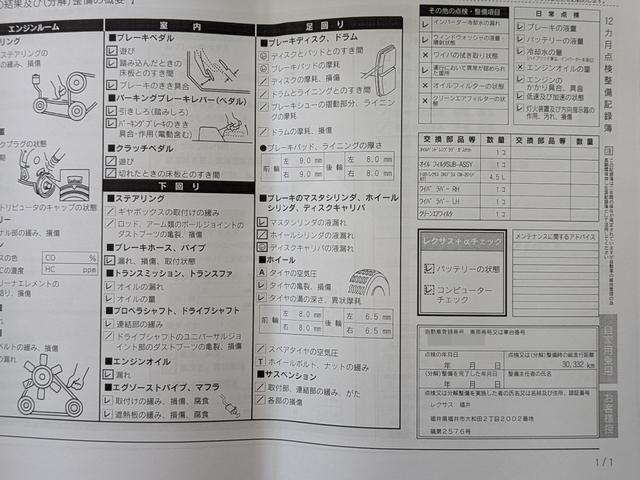 の結果及び(分解)整備の概要 】
エンジンルーム
ステアリングの
の緩み、損傷
プラグの状態
トリビュータのキャップの状態
CO %
HC ppm
の濃度
リーナエレメントの
ベルトの緩み、損傷
室 内
■ブレーキペダル
遊び
踏み込んだときの
床板とのすき間
ブレーキのきき具合
■パーキングブレーキレバー(ペダル)
引きしろ(踏みしろ)
パーキングブレーキのきき
具合・作用(電動含む)
■クラッチペダル
遊び
切れたときの床板とのすき間
下 回 り
■ステアリング
ギヤボックスの取付けの緩み
ロッド、アーム類のボールジョイントの
ダストブーツの亀裂、損傷
■ブレーキホース、パイプ
漏れ、損傷、取付状態
■トランスミッション、トランスファ
オイルの漏れ
オイルの量
■プロペラシャフト、ドライブシャフト
連結部の緩み
ドライブシャフトのユニバーサルジョ
イント部のダストブーツの亀裂、損傷
■エンジンオイル
漏れ
■エグゾーストパイプ、マフラ
取付けの緩み、損傷、腐食
遮熱板の緩み、損傷、腐食
足 回 り
■ブレーキディスク、ドラム
ディスクとパッドとのすき間
ブレーキパッドの摩耗
ディスクの摩耗、損傷
ドラムとライニングとのすき間
ブレーキシューの摺動部分、ライニン
グの摩耗
ドラムの摩耗、損傷
●ブレーキパッド、ライニングの厚さ
前輪 左 9.0 mm 後輪 左 8.0 mm
右 9.0 mm 右 8.0 mm
■ブレーキのマスタシリンダ、ホイール
シリンダ、ディスクキャリパ
マスタシリンダの液漏れ
ホイールシリンダの液漏れ
ディスクキャリパの液漏れ
■ホイール
A タイヤの空気圧
タイヤの亀裂、損傷
タイヤの溝の深さ、異状摩耗
前輪 左 8.0 mm 後輪 左 6.5 mm
右 8.0 mm 右 6.5 mm
スペアタイヤの空気圧
T ホイールボルト、ナットの緩み
■サスペンション
取付部、連結部の緩み、がた
各部の損傷
その他の点検・整備項目
インバーター冷却水の漏れ
ウィンドウォッシャの液量・
噴射状態
ワイパの拭き取り状態
運行において異常が認められ
た箇所
オイルフィルターの状態
クリーンエアフィルターの状
態
日 常 点 検
ブレーキの液量
バッテリーの液量
冷却水の量
エンジンオイルの量
エンジンの
かかり具合、異音
低速及び加速の状態
灯火装置及び方向指示器の
作用、汚れ、損傷
交 換 部 品 等 数 量
1 コ
オイル フィルタSUB-ASSY 1 コ
4.5 L
ワイパ ラバー RH 1 コ
ワイパ ラバー LH 1 コ
クリーンエアフィルタ 1 コ
交 換 部 品 等 数 量
レクサス+αチェック
バッテリーの状態
コンピューター
チェック
メンテナンスに関するアドバイス
自動車登録番号、車両番号又は車台番号
点検の年月日
年 月 日
点検又は(分解)整備時の総走行距離
30,332 km
(分解)整備を完了した年月日
年 月 日
整備主任者の氏名
点検又は分解整備を実施した者の氏名又は名称及び住所、認証番号
レクサス 福井
福井県福井市大和田2丁目2002番地
福第2576号
12カ月点検整備記録簿
自家用乗用
お客様控
1/1